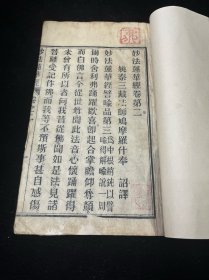 妙法蓮華經卷第二
姚秦三藏法師鳩摩羅什奉 詔譯
妙法蓮華經譬喻品第三
爾時舍利弗踊躍歡喜即起合掌瞻仰尊顏
而白佛言今從世尊聞此法音心懷踊躍得
未曾有所以者何我昔從佛聞如是法見諸
菩薩受記作佛而我等不預斯事甚自感傷